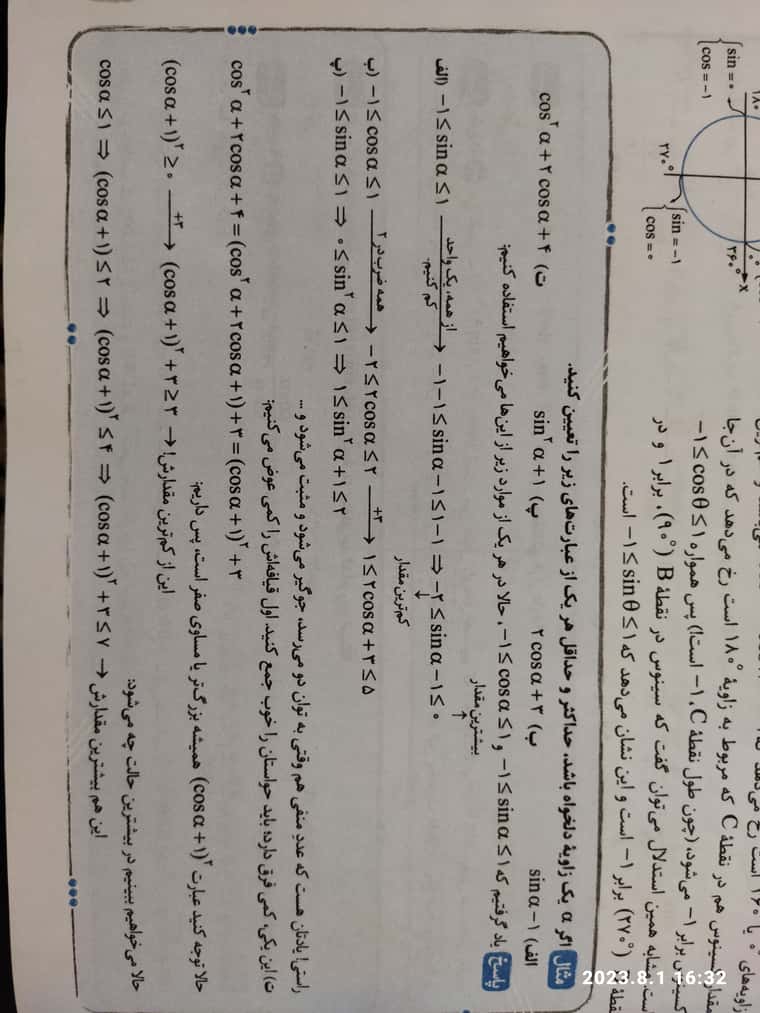 زاویه‌های °
مقدار کسینوس هم در نقطهٔ C که مربوط به زاویهٔ ۱۸۰° است رخ می‌دهد که در آن‌جا
برابر ۱− می‌شود، (چون طول نقطهٔ C، ۱− است!) پس همواره ۱ ≥ cosθ ≥ ۱−
مشابه همین استدلال می‌توان گفت که سینوس در نقطهٔ B (۹۰°)، برابر ۱ و در
نقطهٔ (۲۷۰°) برابر ۱− است و این نشان می‌دهد که ۱ ≥ sinθ ≥ ۱− است.
۱۸۰°
sin = ۰
cos = −۱
۲۷۰°
sin = −۱
cos = ۰
۳۶۰°
x
مثال اگر α یک زاویهٔ دلخواه باشد، حداکثر و حداقل هر یک از عبارت‌های زیر را تعیین کنید.
الف) sin α − ۱
ب) ۲ cos α + ۳
پ) sin² α + ۱
ت) cos² α + ۲ cos α + ۴
پاسخ یاد گرفتیم که ۱ ≥ sin α ≥ ۱− و ۱ ≥ cos α ≥ ۱−، حالا در هر یک از موارد زیر از این‌ها می‌خواهیم استفاده کنیم:
الف) −۱ ≤ sin α ≤ ۱ از همه، یک واحد کم کنیم. → −۱−۱ ≤ sin α −۱ ≤ ۱−۱ ⇒ −۲ ≤ sin α −۱ ≤ ۰
کم‌ترین مقدار
بیشترین مقدار
ب) −۱ ≤ cos α ≤ ۱ همه ضرب در ۲ → −۲ ≤ ۲ cos α ≤ ۲ +۳ → ۱ ≤ ۲ cos α + ۳ ≤ ۵
پ) −۱ ≤ sin α ≤ ۱ ⇒ ۰ ≤ sin² α ≤ ۱ ⇒ ۱ ≤ sin² α + ۱ ≤ ۲
راستی! یادتان هست که عددِ منفی هم وقتی به توان دو می‌رسد، جوگیر می‌شود و مثبت می‌شود و ...
ت) این یکی، کمی فرق دارد؛ باید حواستان را خوب جمع کنید. اول قیافه‌اش را کمی عوض می‌کنیم:
cos² α + ۲ cos α + ۴ = (cos² α + ۲ cos α + ۱) + ۳ = (cos α + ۱)² + ۳
حالا توجه کنید عبارت (cos α + ۱)² همیشه بزرگ‌تر یا مساوی صفر است، پس داریم:
(cos α + ۱)² ≥ ۰ +۳ → (cos α + ۱)² + ۳ ≥ ۳ → این از کم‌ترین مقدارش!
حالا می‌خواهیم ببینیم در بیشترین حالت چه می‌شود:
cos α ≤ ۱ ⇒ (cos α + ۱) ≤ ۲ ⇒ (cos α + ۱)² ≤ ۴ ⇒ (cos α + ۱)² + ۳ ≤ ۷ → این هم بیشترین مقدارش
2023.8.1 16:32